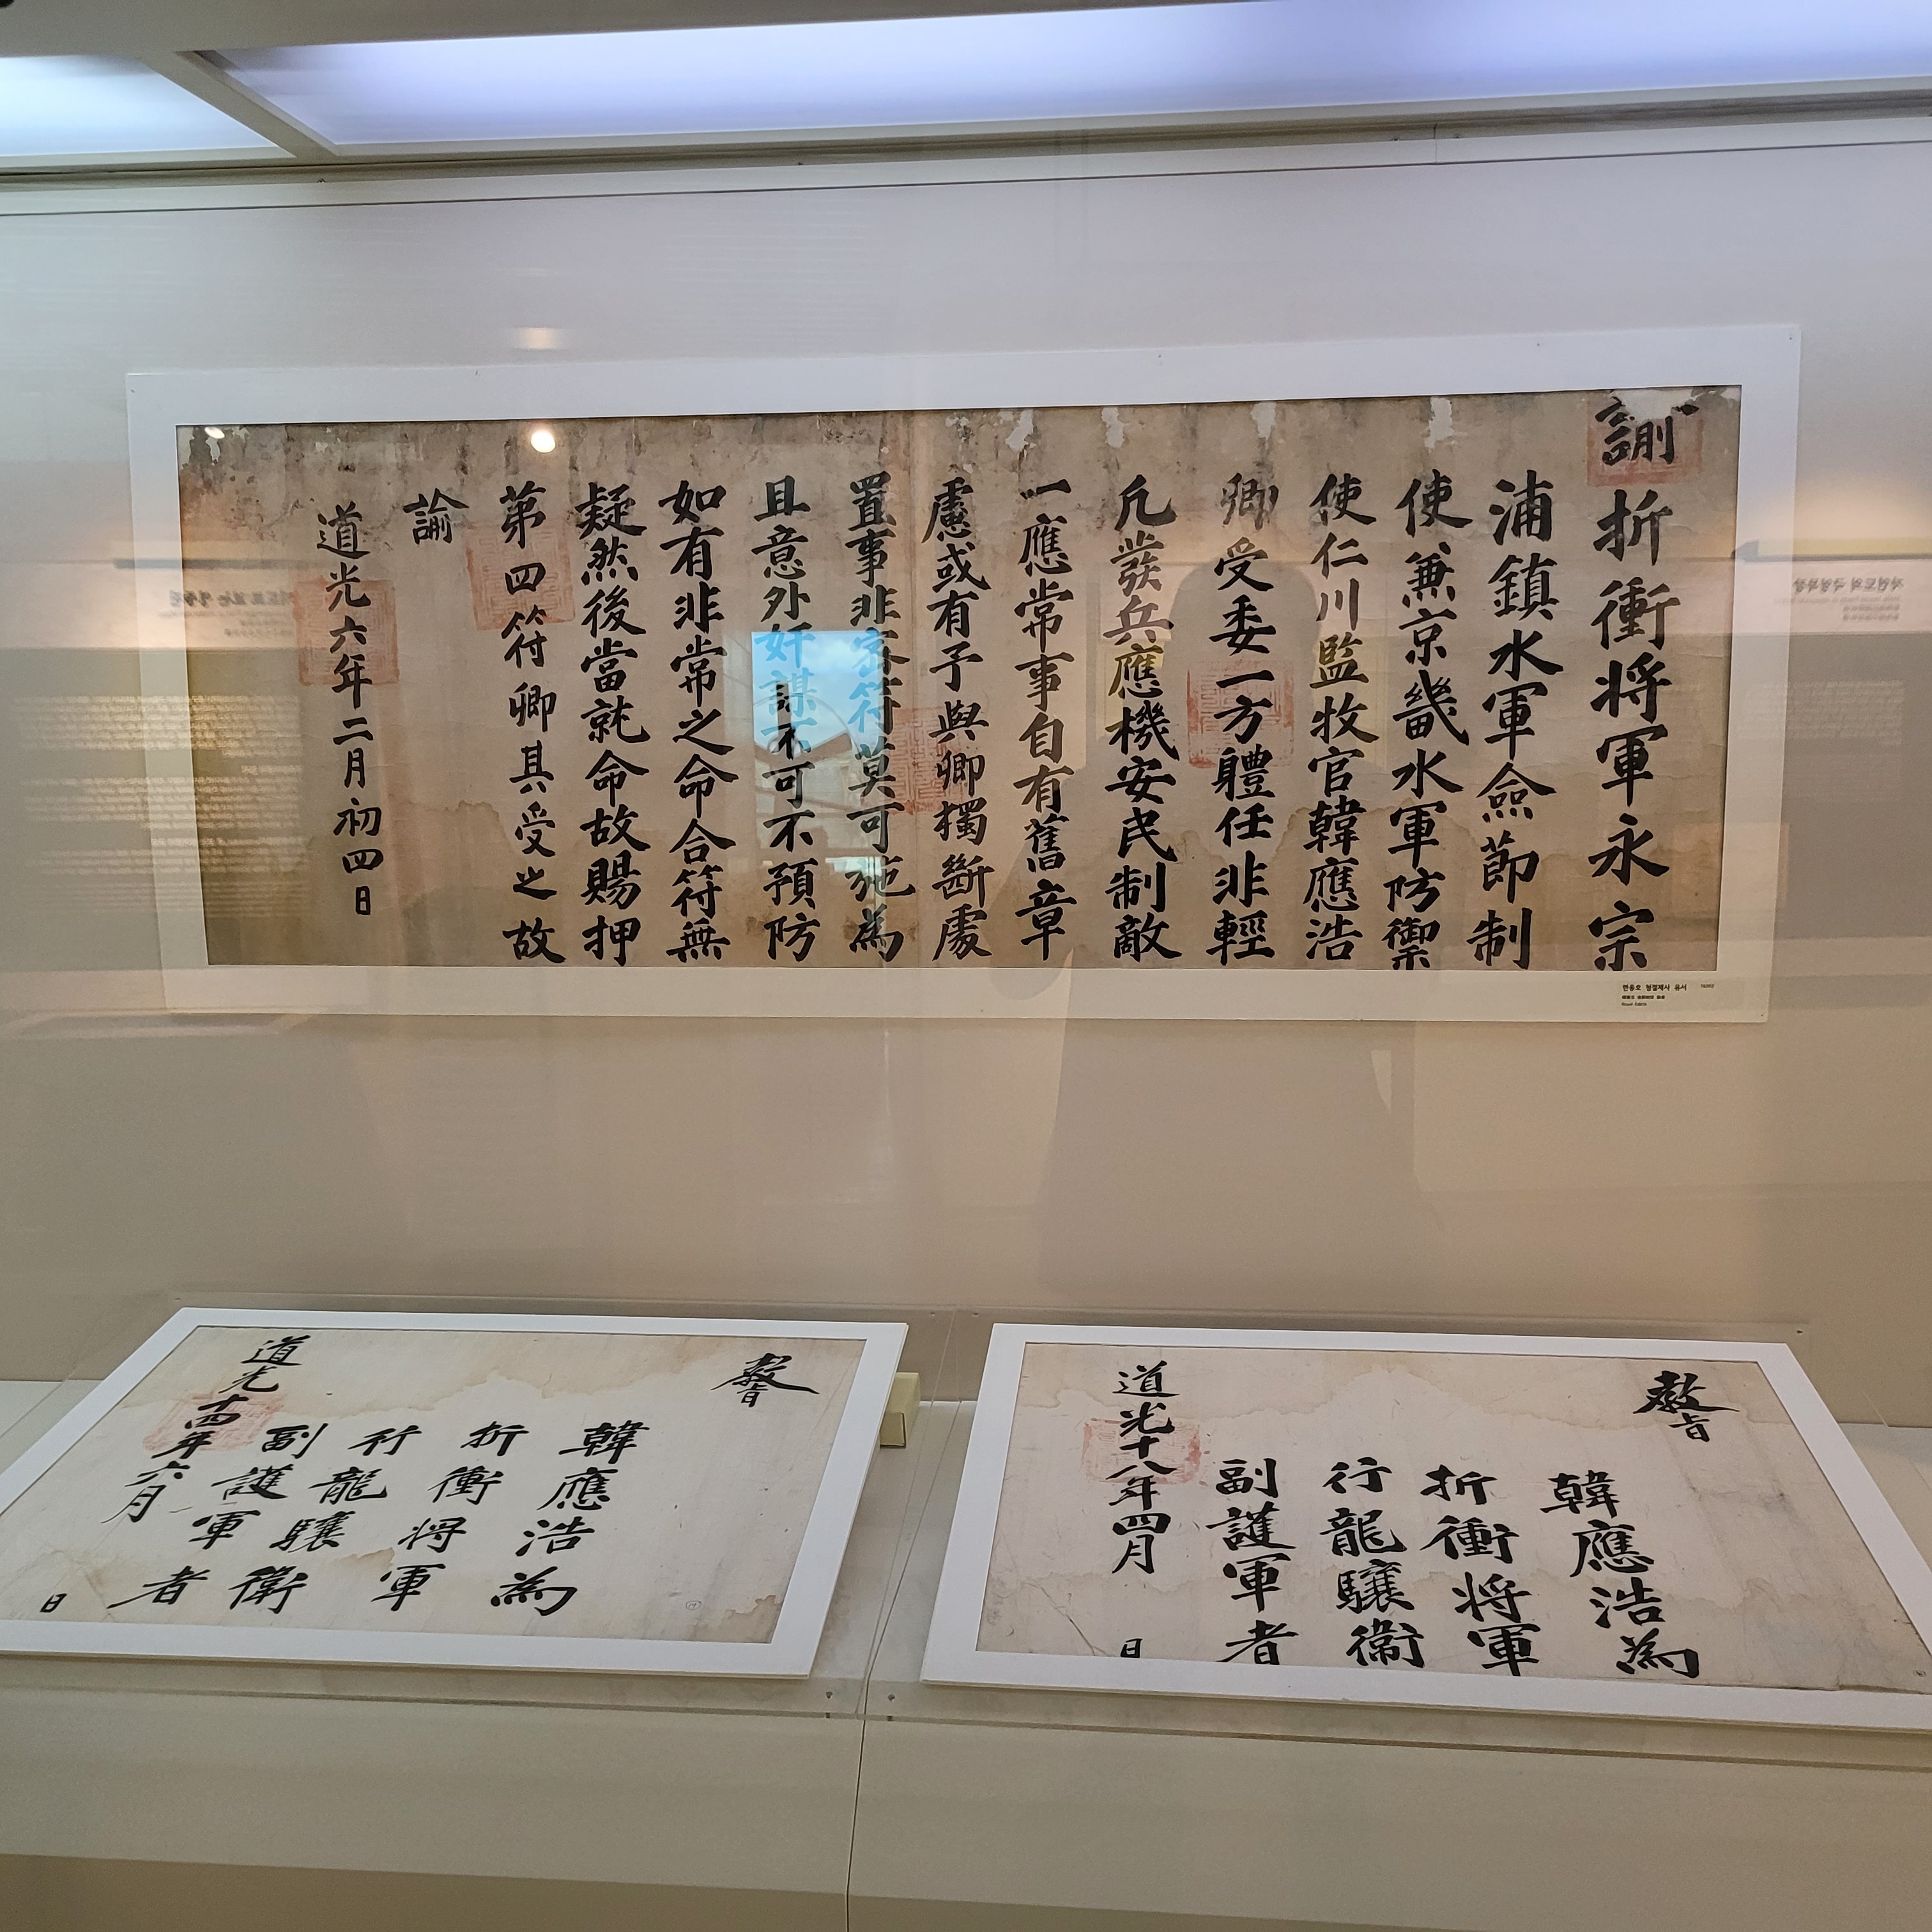 諭折衝将軍永宗
浦鎮水軍僉節制
使兼京畿水軍防禦
使仁川監牧官韓應浩
卿受委一方體任非輕
凡發兵應機安民制敵
一應常事自有舊章
慮或有予與卿獨斷處
置事非密符莫可施為
且意外奸謀不可不預防
如有非常之命合符無
疑然後當就命故賜押
第四符卿其受之故
諭
道光六年二月初四日
한응호 첨절제사 유서
敎旨
韓應浩為
折衝将軍
行龍驤衛
副護軍者
道光十四年六月 日
敎旨
韓應浩為
折衝将軍
行龍驤衛
副護軍者
道光十八年四月 日